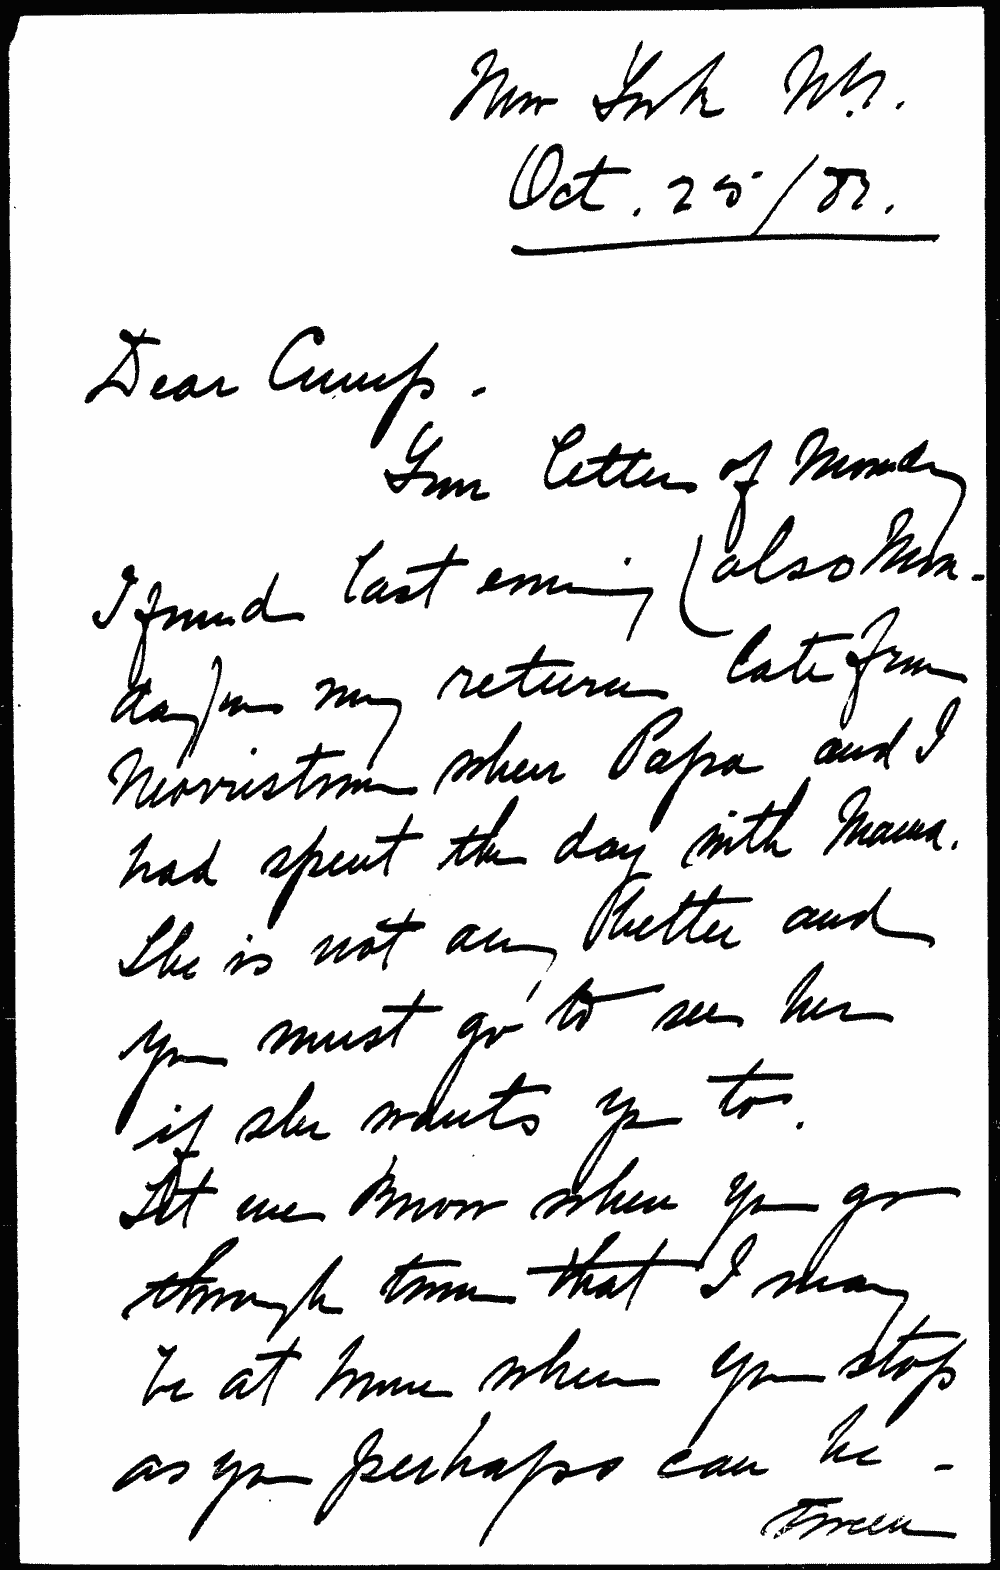 New York N.Y.
Oct. 25/82.
Dear Crump.
Your letter of Monday
I found last evening (also Mon-
day) on my return late from
Morristown where Papa and I
had spent the day with Mama.
She is not any better and
you must go to see her
if she wants you to.
Let me know when you go
through town that I may
be at home when you stop
as you perhaps can be -
tween